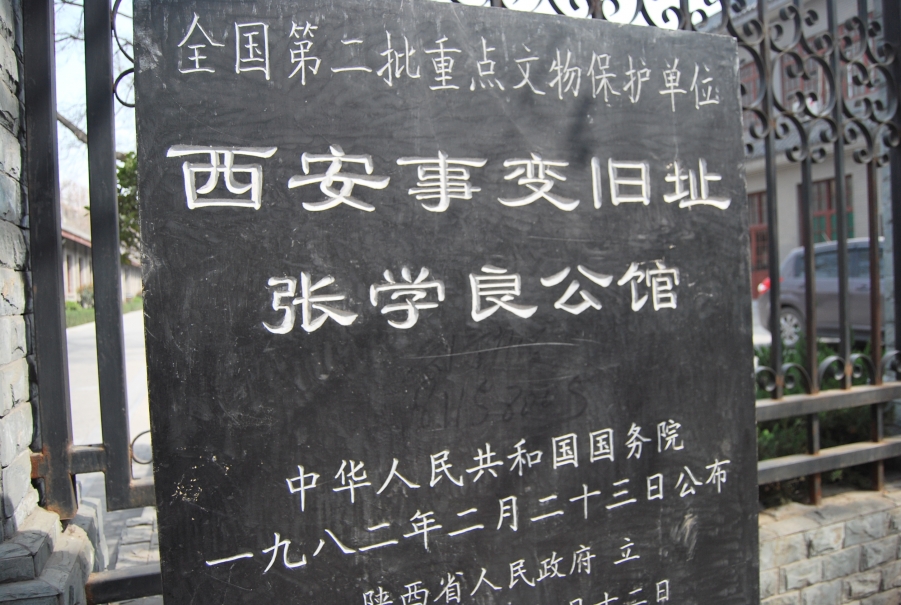 全国第二批重点文物保护单位
西安事变旧址
张学良公馆
中华人民共和国国务院
一九八二年二月二十三日公布
陕西省人民政府 立
月十二日